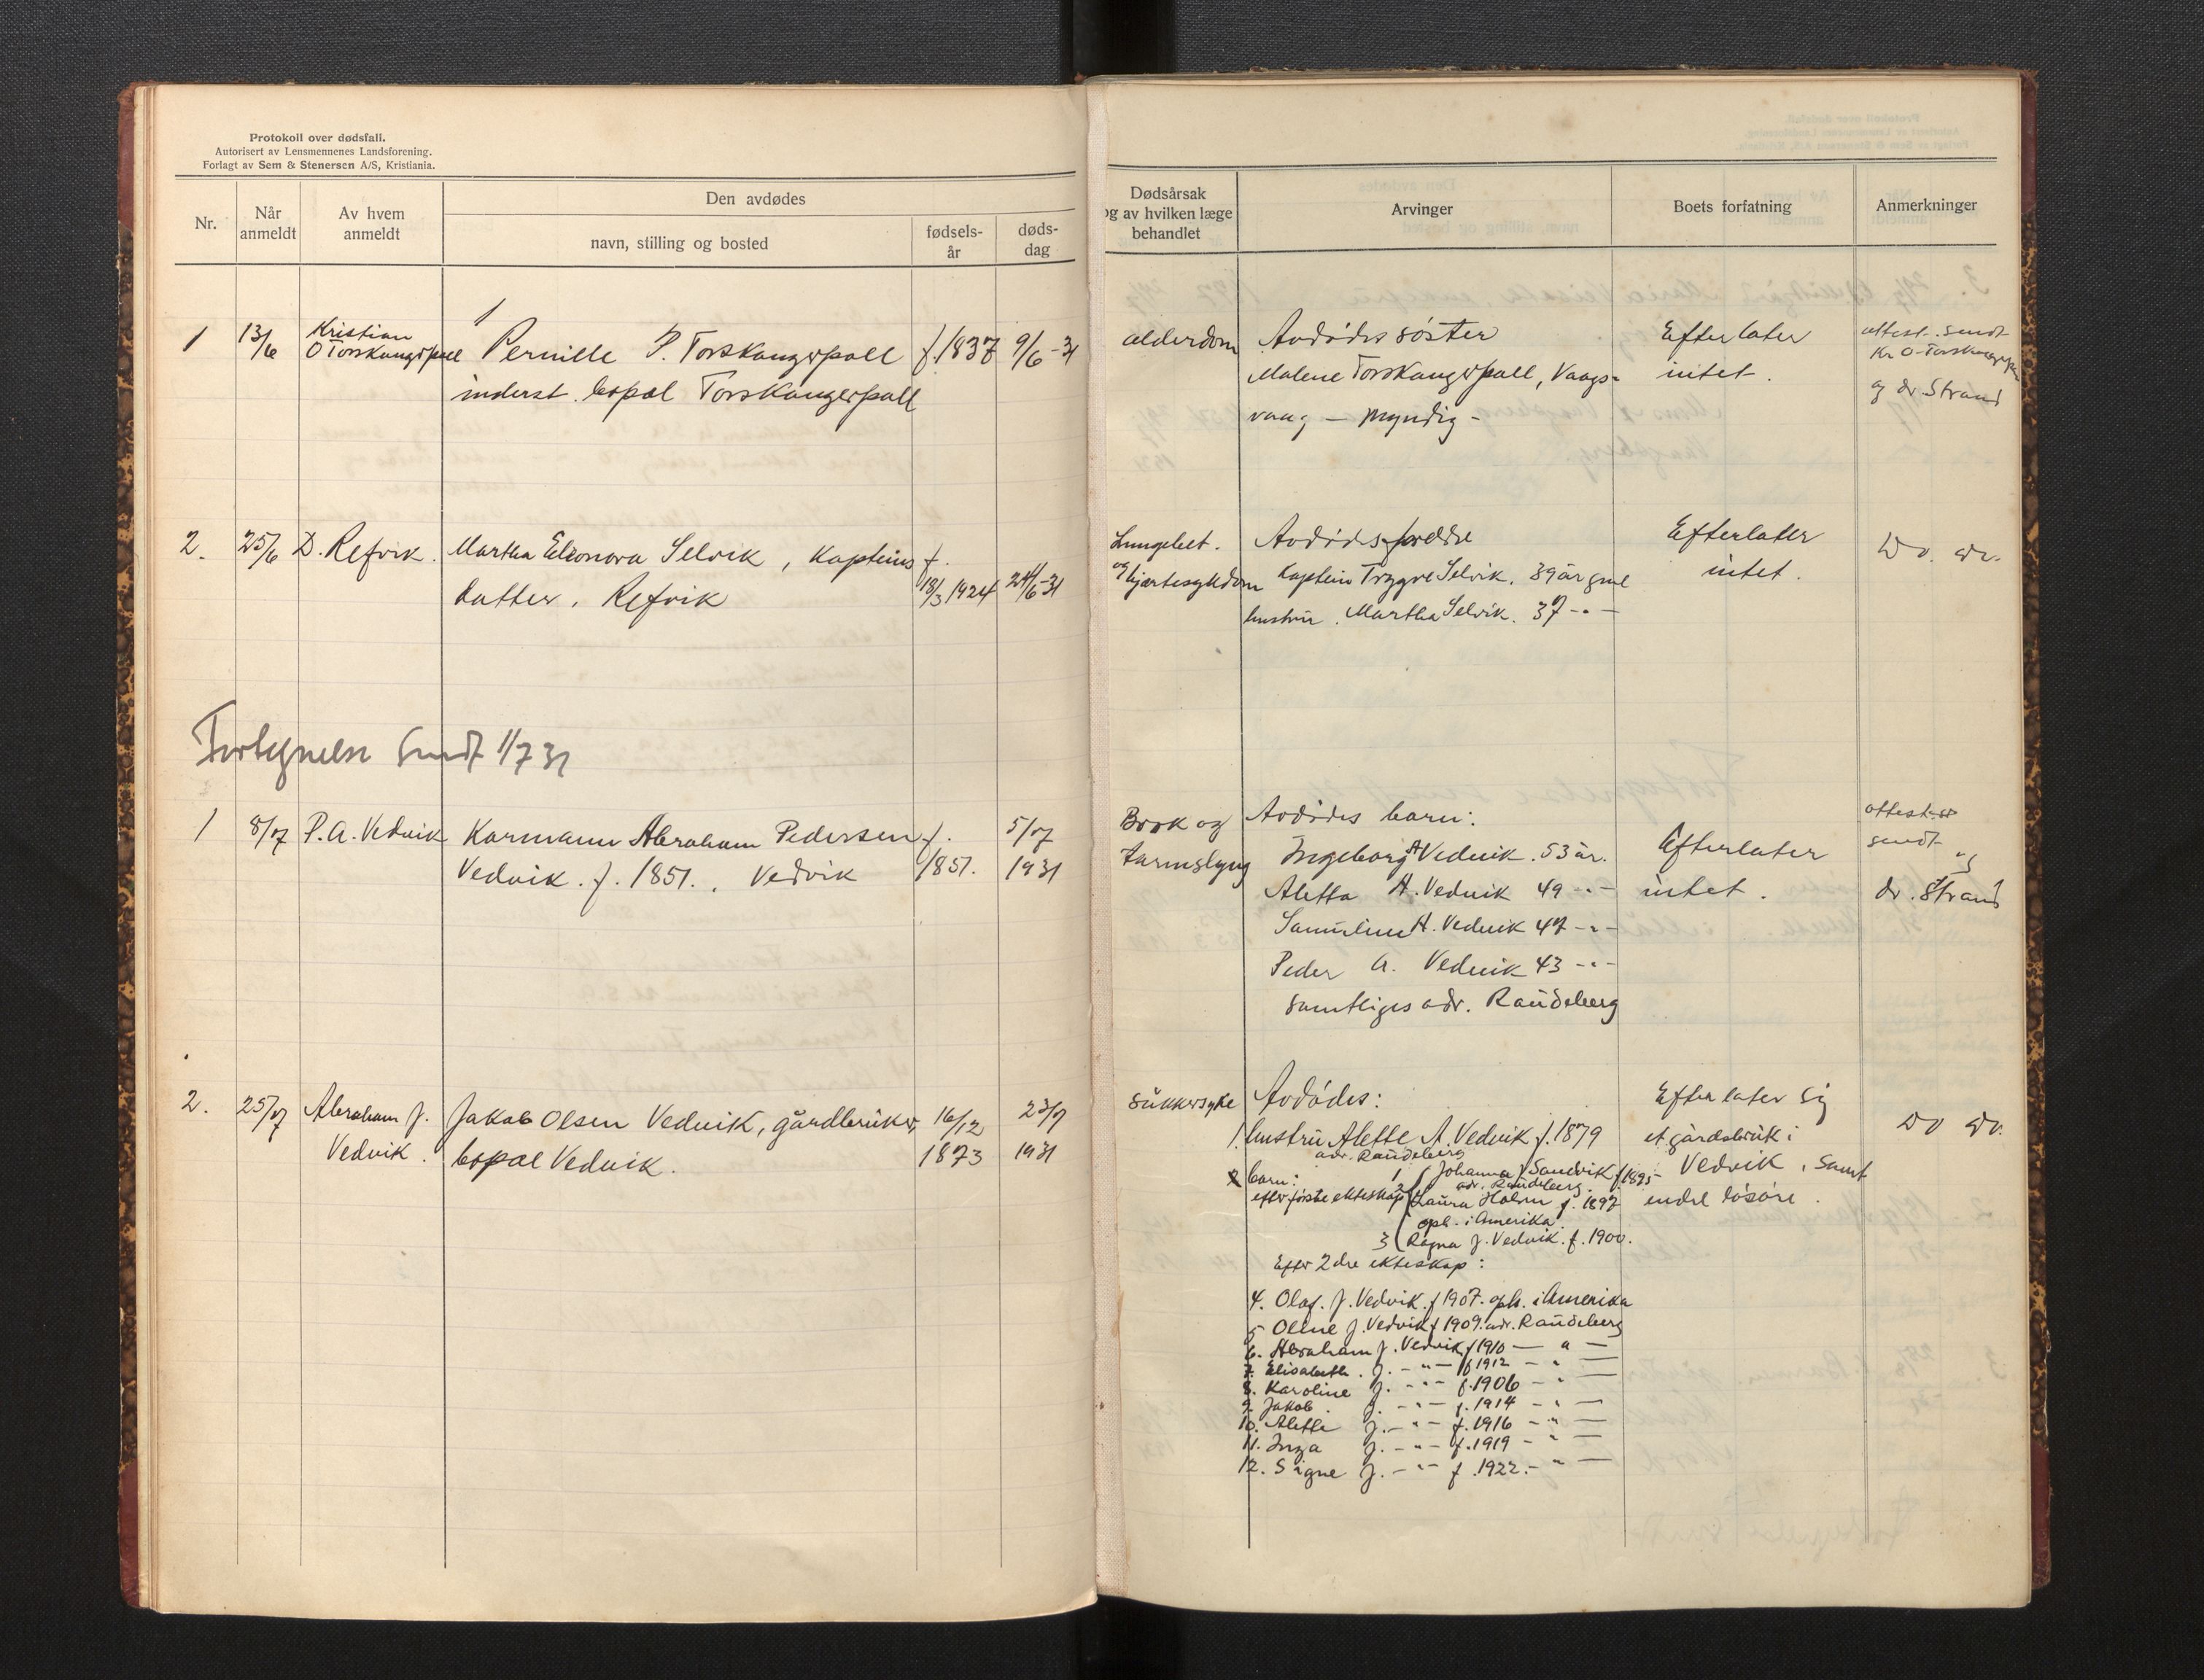 Protokoll over dødsfall.
Autorisert av Lensmennenes Landsforening.
Forlagt av Sem & Stenersen A/S, Kristiania.
Nr.
Når
anmeldt
Av hvem
anmeldt
Den avdødes
navn, stilling og bosted
fødsels-
år
døds-
dag
1
13/6
Kristian
O Torskangerpoll
1
Pernille P. Torskangerpoll
inderst. bopal Torskangerpoll
f. 1837
9/6-31
2.
25/6
D. Refvik.
Martha Eleonora Selvik, Kapteins
datter. Refvik
f.
18/3 1924
24/6-31
Fortegnelse sendt 1/7 31
1
8/7
P. A. Vedvik
Karmann Abraham Pedersen
Vedvik. f. 1851., Vedvik
f.
1851.
5/7
1931
2.
25/7
Abraham J.
Vedvik.
Jakob Olsen Vedvik, gårdbruker,
bopæl Vedvik.
16/12
1873
23/7
1931
Dødsårsak
og av hvilken læge
behandlet
Arvinger
Boets forfatning
Anmerkninger
alderdom
Avdødes søster
Malene Torskangerpoll, Vaags-
vaag - myndig -
Efterlater
intet.
attest. sendt
Kr O. Torskangerpoll
og dr. Strand
Lungebet.
og hjertesykdom
Avdødes foreldre
Kaptein Trygve Selvik. 39 år gml
hustru. Martha Selvik. 37 -"-
Efterlater
intet.
Do. do.
Brok og
tarmslyng
Avdødes barn:
Ingeborg A Vedvik. 53 år.
Aletta A. Vedvik 49 -"-
A. Vedvik 47 -"-
Peder A. Vedvik 43 -"-
samtliges adr. Raudeberg
Efterlater
intet.
attest
sendt
og
dr. Strand
Sukkersyke
Avdødes:
1. hustru Alette A. Vedvik f. 1879
adr. Raudeberg
2 barn:
efter første ekteskap
1 ( Johanna J Sandvik f 1895-
adr. Raudeberg.
2 ( Laura Holm f. 1897
oph. i Amerika
3 ( Ragna J. Vedvik. f. 1900.
Efter 2dre ekteskap:
4. Olaf. J. Vedvik. f 1907. oph. i Amerika
5 Oline J. Vedvik f 1909. adr. Raudeberg
6. Abraham J. Vedvik f 1910 — " —
7. Elisabeth. J. - " - f 1912 - " —
8. Karoline J. - " - f. 1906 - "
9. Jakob. J. - " - f. 1914 - " —
10. Alette J. - " - f. 1916 - " —
11. Inga J. - " - f. 1919 - " —
12. Signe J. - " - f. 1922. - " —
Efterlater sig
et gårdsbruk i
Vedvik, samt
endel løsøre.
Do do.